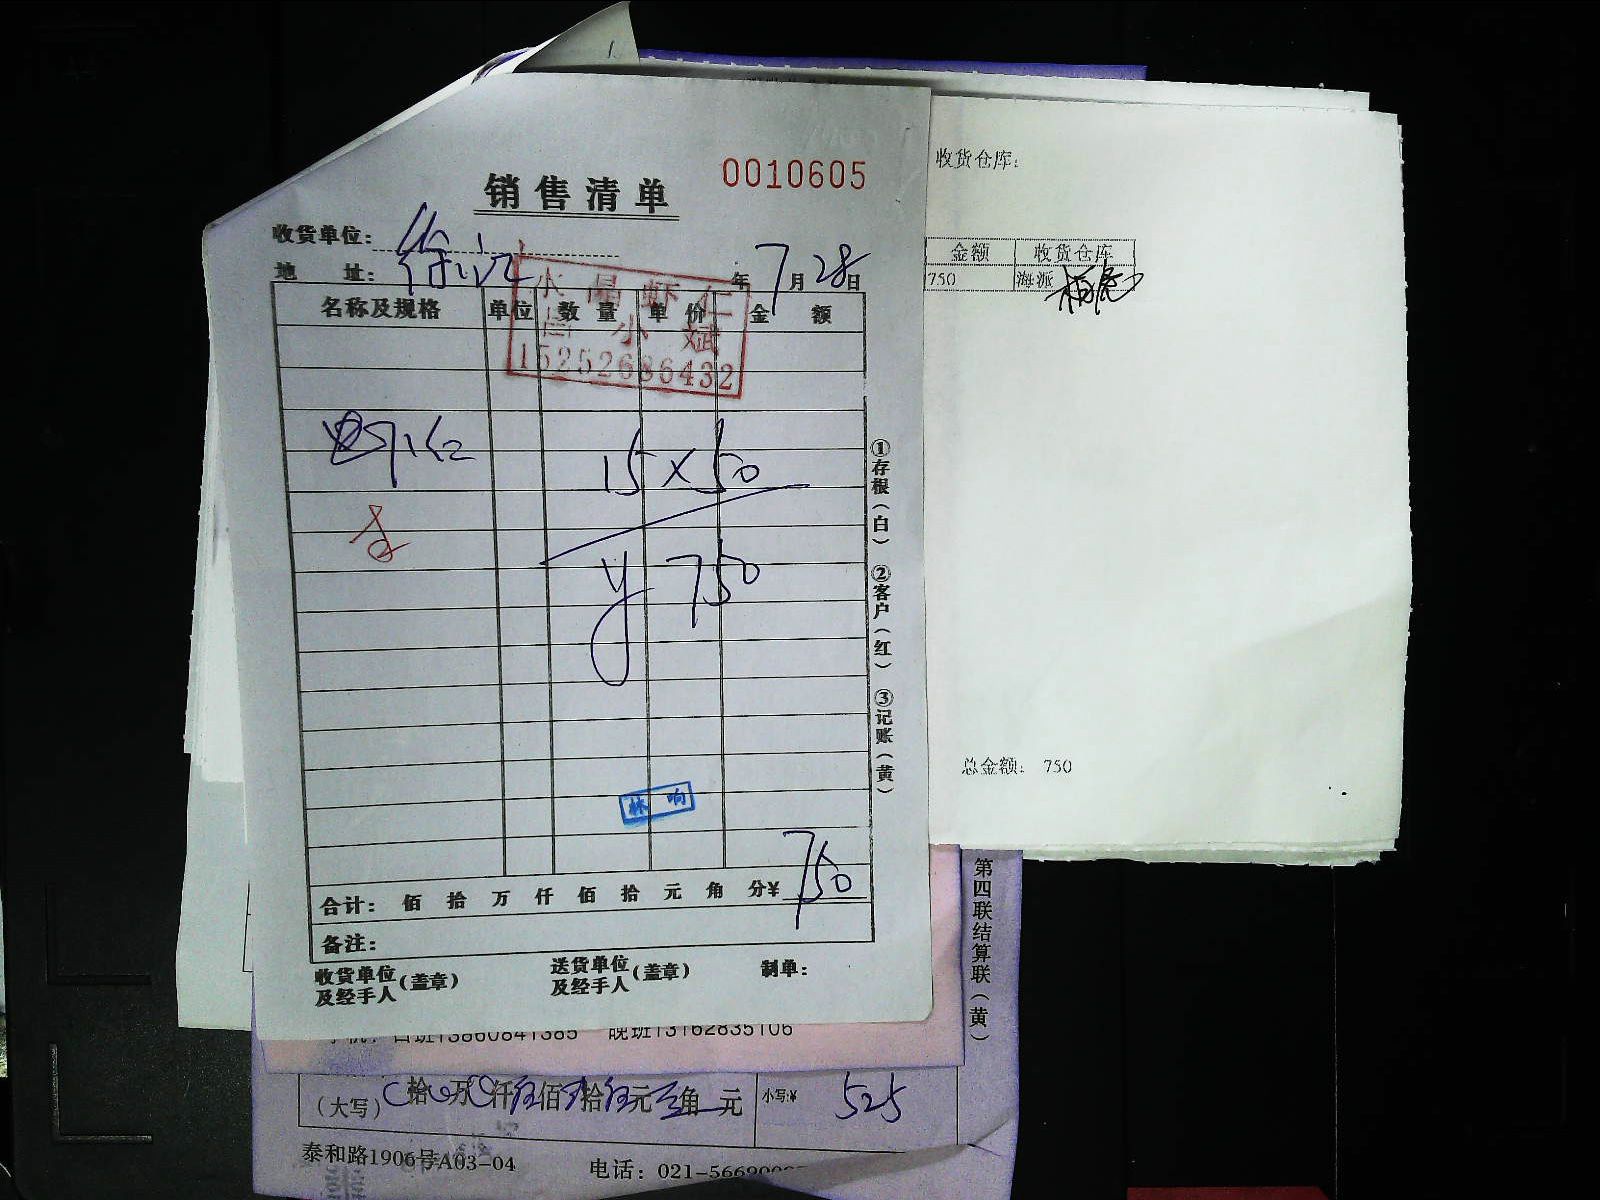 0010605
销售清单
收货单位：
地 址： 年 7 月 28 日
水晶虾仁
小斌
15252686432
名称及规格 单位 数量 单价 金额
15×50
¥ 750
①存根（白） ②客户（红） ③记账（黄）
林响
合计： 佰 拾 万 仟 佰 拾 元 角 分¥ 750
备注：
收货单位及经手人（盖章） 送货单位及经手人（盖章） 制单：
收货仓库：
金额 收货仓库
750 海派
总金额： 750
第四联结算联（黄）
手机：白班13860841385 晚班13162835106
（大写） 拾 万 仟 佰 拾 元 角 元 小写:¥ 525
泰和路1906号A03-04 电话：021-5669